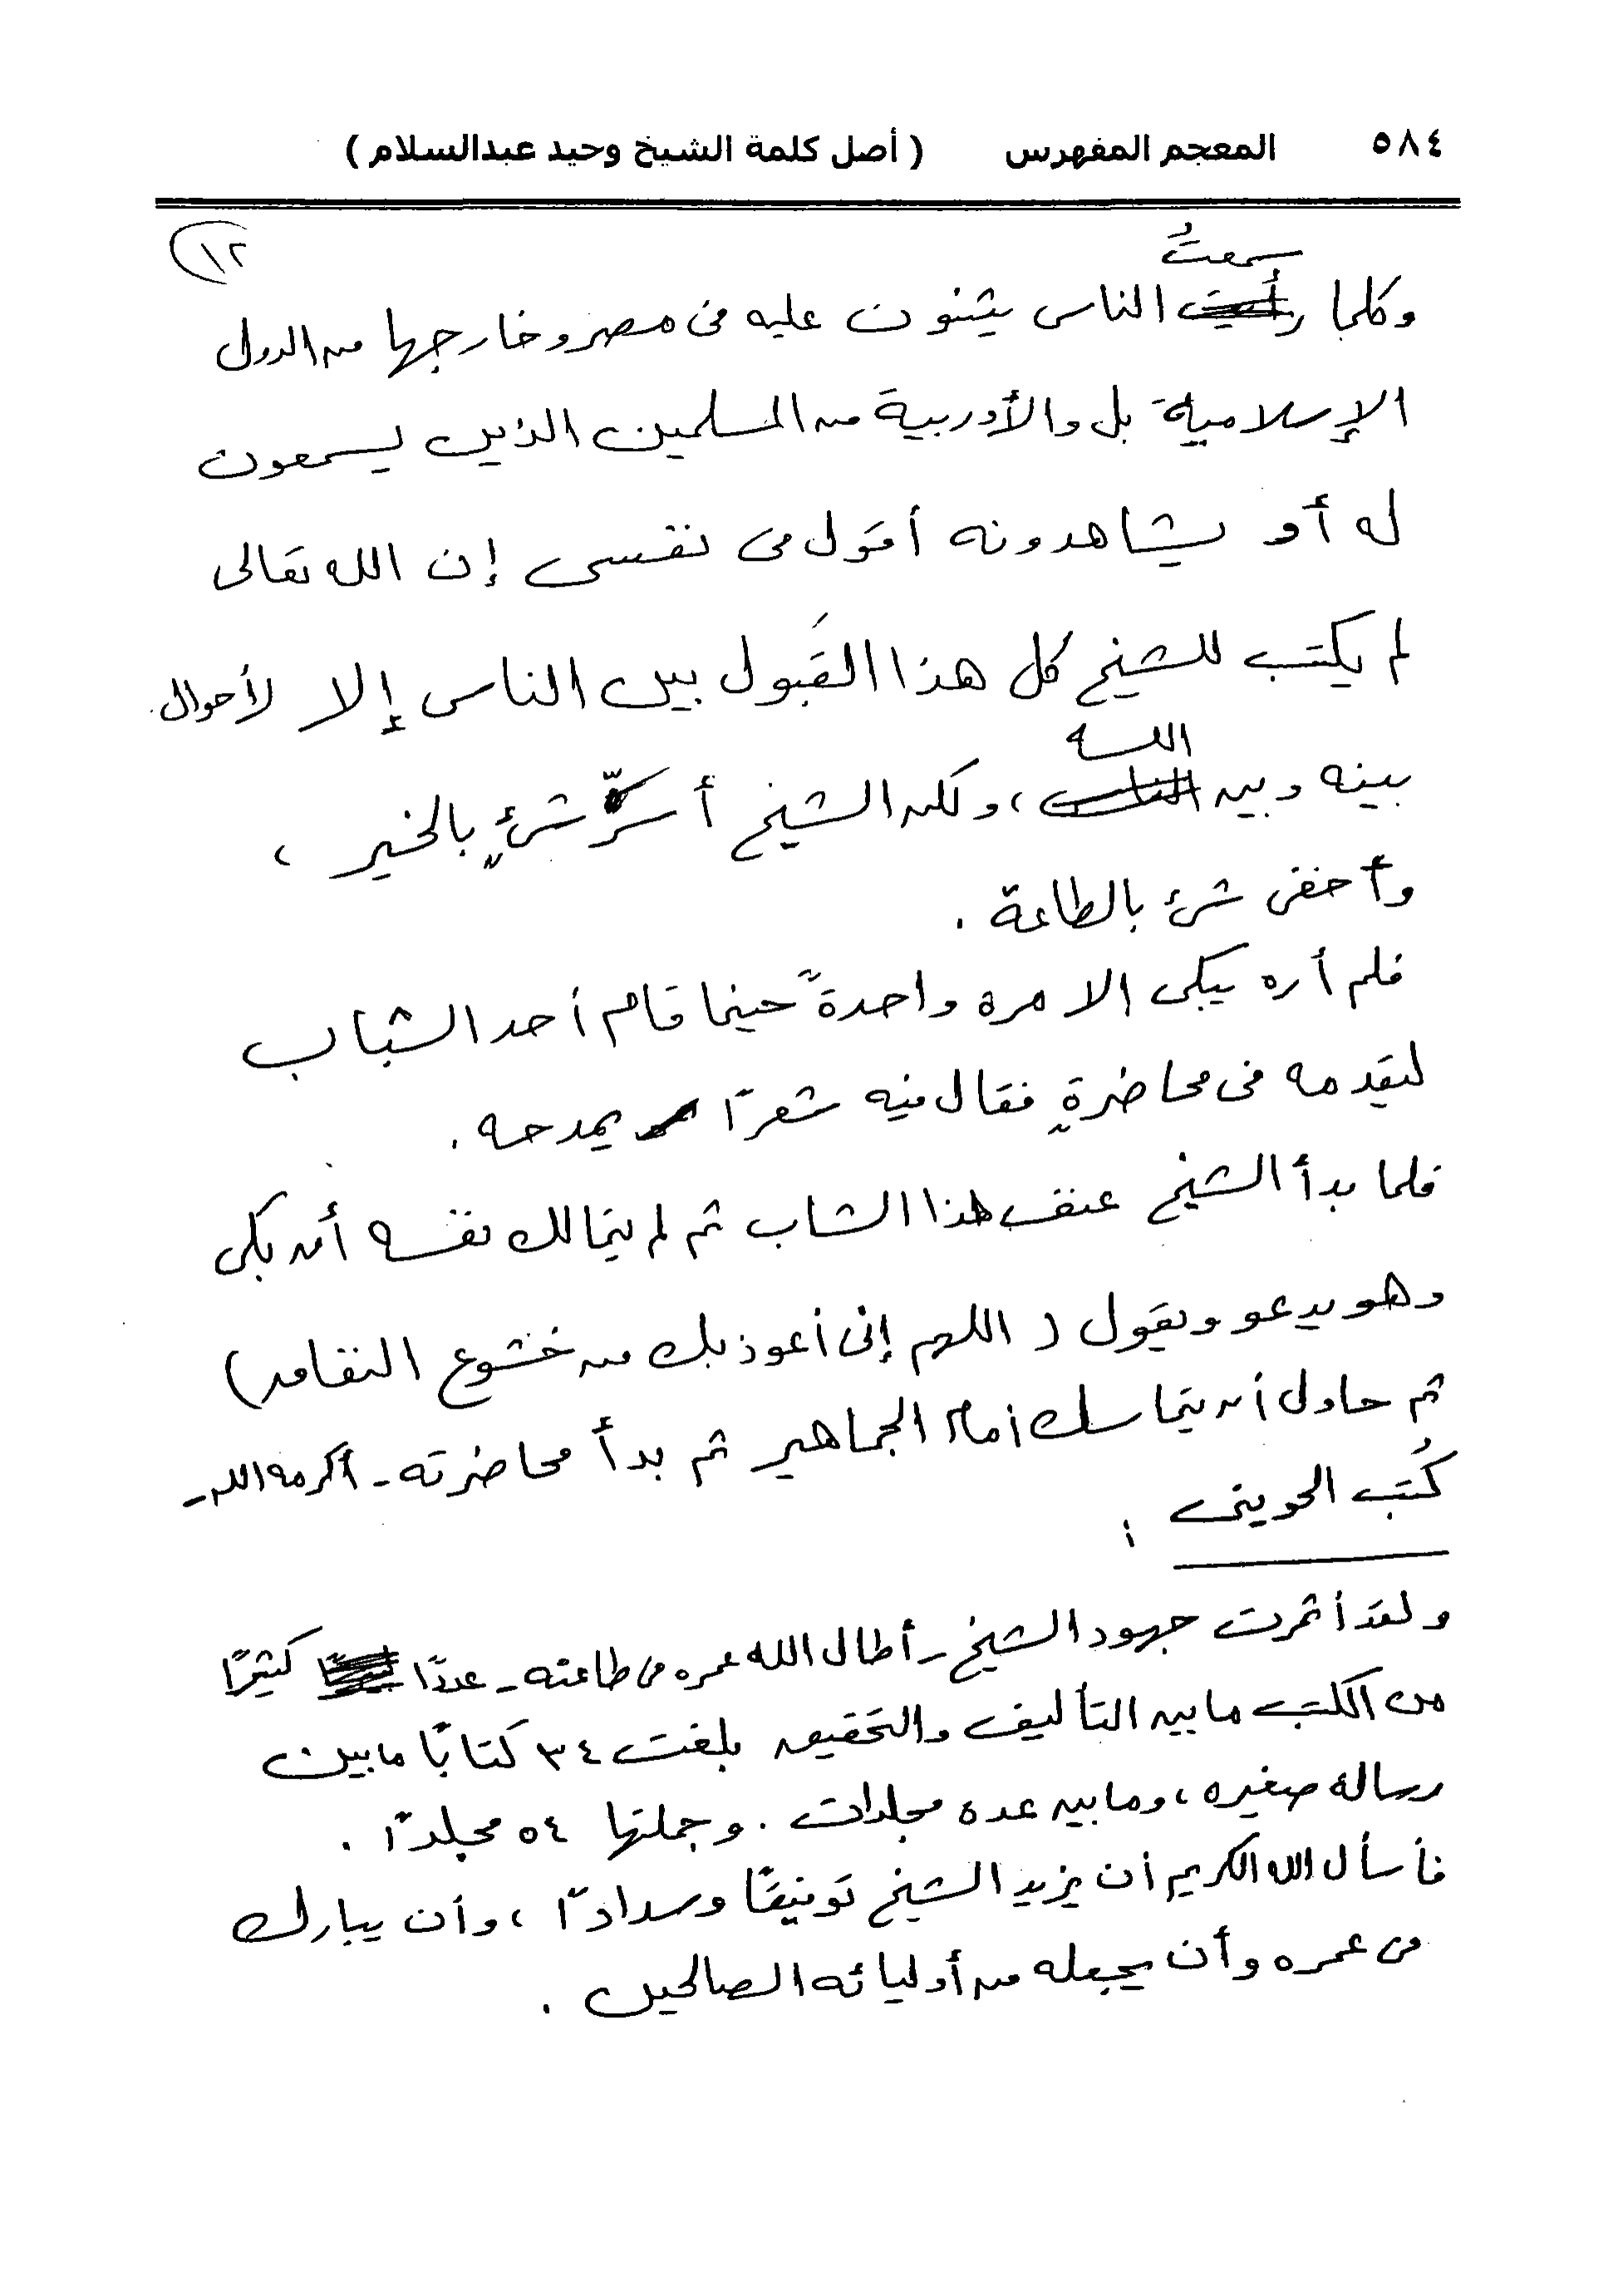 ٥٨٤ المعجم المفهرس ( أصل كلمة الشيخ وحيد عبدالسلام )
١٢
سمعتُ
وكلما رأيت الناس يثنون عليه فى مصر وخارجها من الدول
الإسلامية بل والأوربية من المسلمين الذين يسمعون
له أو يشاهدونه أقول فى نفسى إن الله تعالى
لم يكتب للشيخ كل هذا القَبول بين الناس إلا لأحوال
الله
بينه وبين الناس ، ولكن الشيخ أسرّ شئٍ بالخير ،
وأخفى شئ بالطاعة .
فلم أره يبكى إلا مرة واحدةً حينما قام أحد الشباب
ليقدمه فى محاضرةٍ فقال فيه شعرًا يمدحه .
فلما بدأ الشيخ عنف هذا الشاب ثم لم يتمالك نفسه أن بكى
وهو يدعو ويقول ( اللهم إنى أعوذ بك من خشوع النفاق )
ثم حاول أن يتماسك أمام الجماهير ثم بدأ محاضرته - أكرمه الله -
كُتب الحوينى :
ولقد أثمرت جهود الشيخ - أطال الله عمره فى طاعته - عددًا كثيرًا
من الكتب ما بين التأليف والتحقيق بلغت ٣٤ كتابًا ما بين
رسالة صغيره ، وما بين عدة مجلدات . وجملتها ٥٤ مجلدًا .
فأسأل الله الكريم أن يزيد الشيخ توفيقًا وسدادًا ، وأن يبارك
فى عمره وأن يجعله من أوليائه الصالحين .